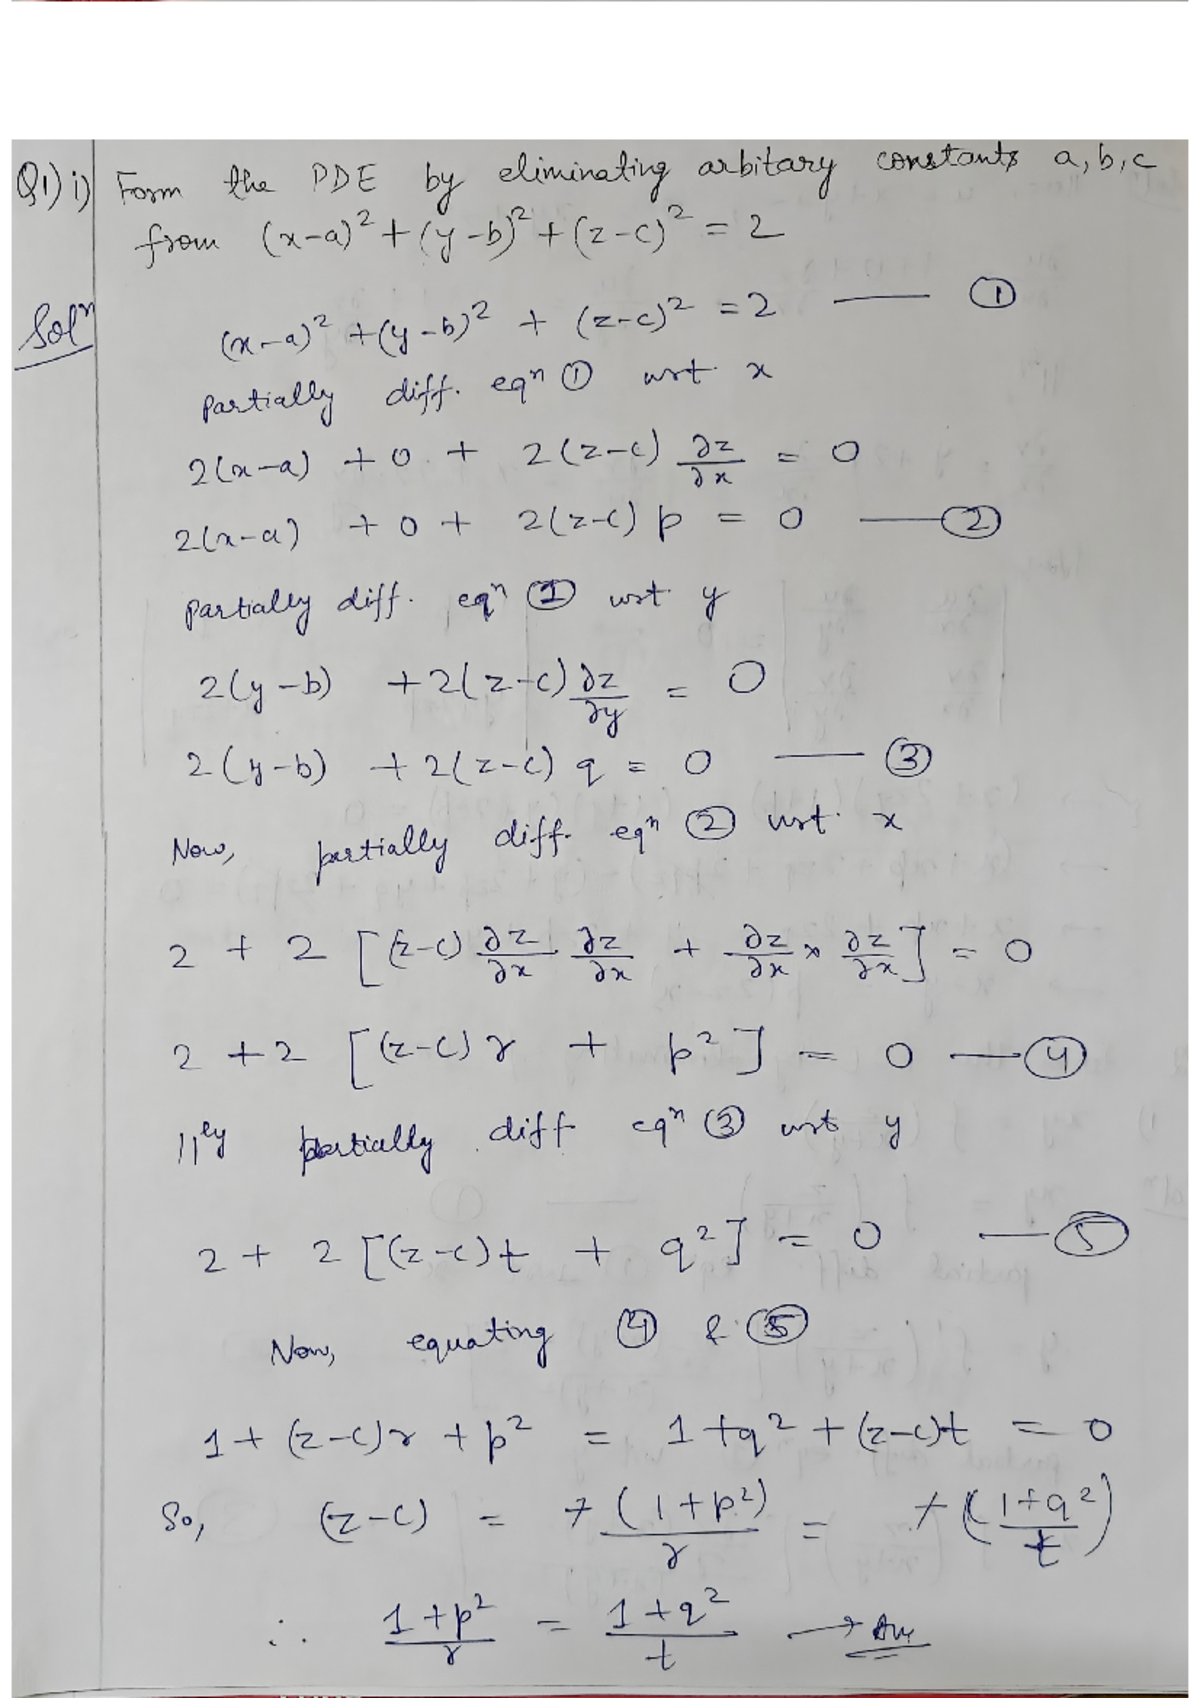 Q1) i) Form the PDE by eliminating arbitary constants a, b, c
from (x-a)² + (y-b)² + (z-c)² = 2
Solⁿ
(x-a)² + (y-b)² + (z-c)² = 2 —— ①
Partially diff. eqⁿ ① wrt x
2(x-a) + 0 + 2(z-c) ∂z/∂x = 0
2(x-a) + 0 + 2(z-c) p = 0 —— ②
Partially diff. eqⁿ ① wrt y
2(y-b) + 2(z-c) ∂z/∂y = 0
2(y-b) + 2(z-c) q = 0 —— ③
Now, partially diff. eqⁿ ② wrt x
2 + 2 [(z-c) ∂z/∂x . ∂z/∂x + ∂z/∂x × ∂z/∂x] = 0
2 + 2 [(z-c) r + p²] = 0 —— ④
||ly partially diff eqⁿ ③ wrt y
2 + 2 [(z-c)t + q²] = 0 —— ⑤
Now, equating ④ & ⑤
1 + (z-c)r + p² = 1 + q² + (z-c)t = 0
So, (z-c) = + (1+p²)/r = + (1+q²)/t
∴ 1+p²/r = 1+q²/t → Ans